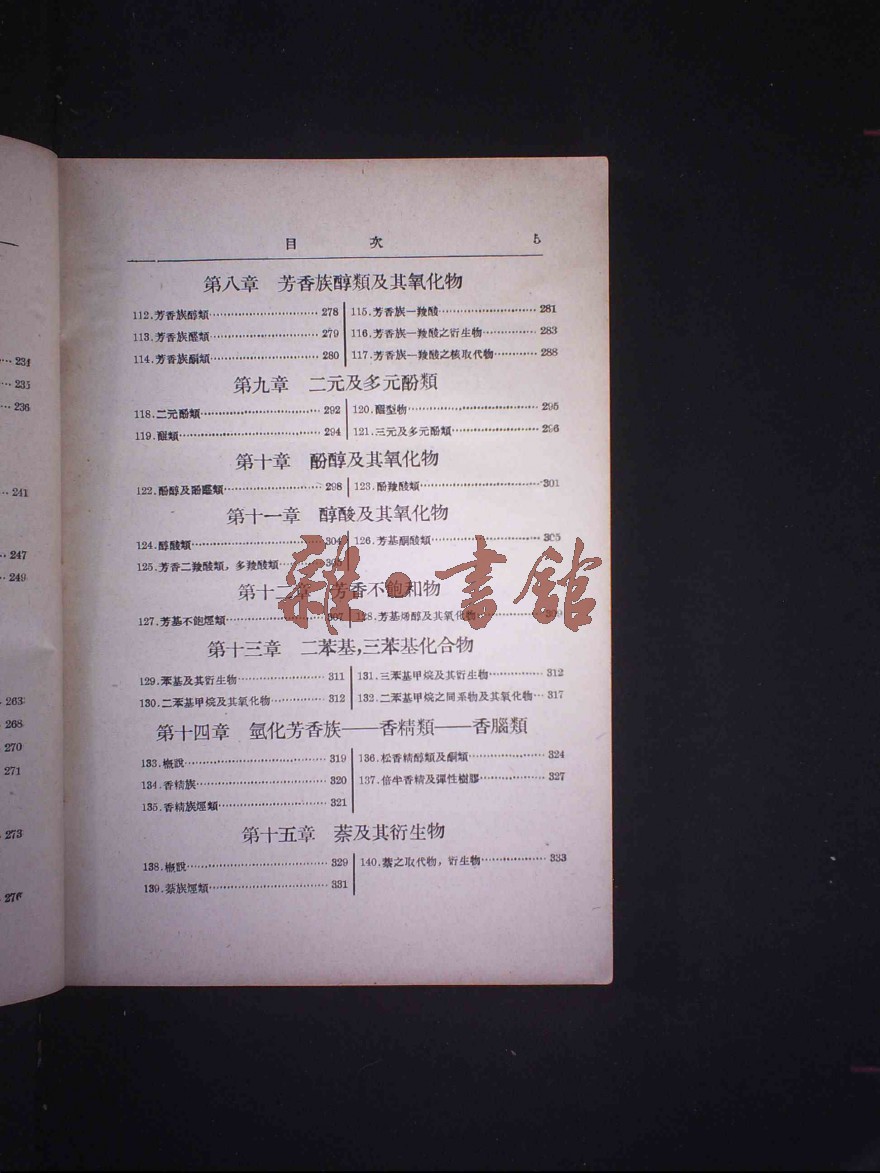 234
235
236
241
247
249
263
268
270
271
273
276
目 次 5
第八章 芳香族醇類及其氧化物
112.芳香族醇類 278
113.芳香族醛類 279
114.芳香族酮類 280
115.芳香族一羧酸 281
116.芳香族一羧酸之衍生物 283
117.芳香族一羧酸之核取代物 288
第九章 二元及多元酚類
118.二元酚類 292
119.醌類 294
120.醌型物 295
121.三元及多元酚類 296
第十章 酚醇及其氧化物
122.酚醇及酚醛類 298
123.酚羧酸類 301
第十一章 醇酸及其氧化物
124.醇酸類 304
125.芳香二羧酸類，多羧酸類 305
126.芳基酮酸類 305
第十二章 芳香不飽和物
127.芳基不飽烴類 307
128.芳基烯醇及其氧化物
第十三章 二苯基,三苯基化合物
129.苯基及其衍生物 311
130.二苯基甲烷及其氧化物 312
131.三苯基甲烷及其衍生物 312
132.二苯基甲烷之同系物及其氧化物 317
第十四章 氫化芳香族——香精類——香腦類
133.概說 319
134.香精族 320
135.香精族烴類 321
136.松香精醇類及酮類 324
137.倍半香精及彈性樹膠 327
第十五章 萘及其衍生物
138.概說 329
139.萘族烴類 331
140.萘之取代物，衍生物 333
雜·書館